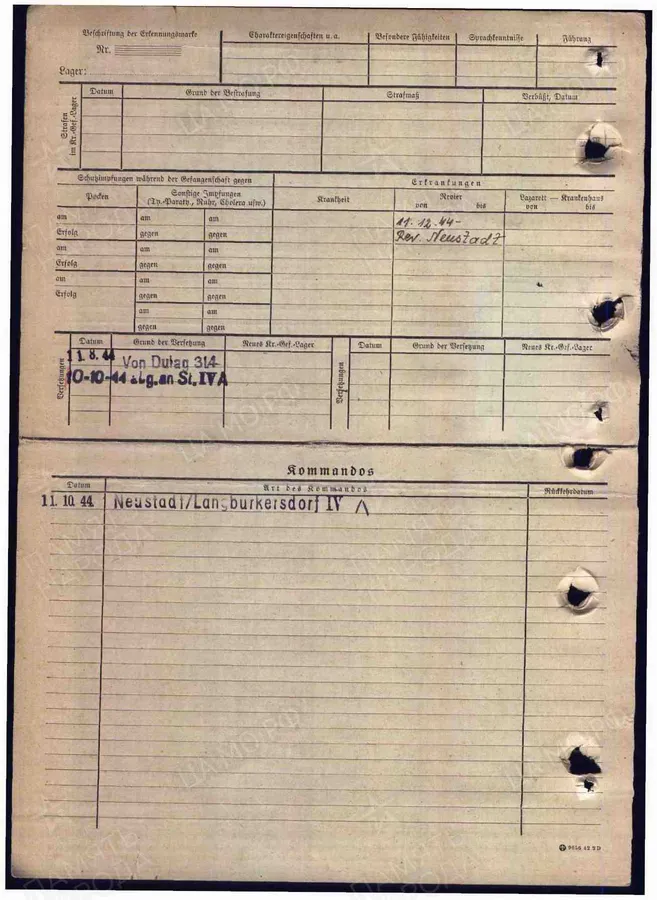 Beschriftung der Erkennungsmarke
Nr.
Lager:
Charaktereigenschaften u.a.
Besondere Fähigkeiten
Sprachkenntnisse
Führung
Strafen im Kr.-Gef.-Lager
Datum
Grund der Bestrafung
Strafmaß
Verbüßt, Datum
Schutzimpfungen während der Gefangenschaft gegen
Erkrankungen
Pocken
Sonstige Impfungen
(Ty.-Paraty., Ruhr, Cholera usw.)
Krankheit
Revier
von bis
Lazarett — Krankenhaus
von bis
am am am
11. 12. 44 -
Erfolg gegen gegen
Rev. Neustadt
am am am
Erfolg gegen gegen
am am am
Erfolg gegen gegen
am am
gegen gegen
Versetzungen
Datum
Grund der Versetzung
Neues Kr.-Gef.-Lager
Versetzungen
Datum
Grund der Versetzung
Neues Kr.-Gef.-Lager
11.8.44 Von Dulag 314
10-10-44 abg. an St. IV A
Kommandos
Datum
Art des Kommandos
Rückkehrdatum
11. 10. 44. Neustadt/Langburkersdorf IV A
ЦАМО.РФ
ПАМЯТЬ НАРОДА